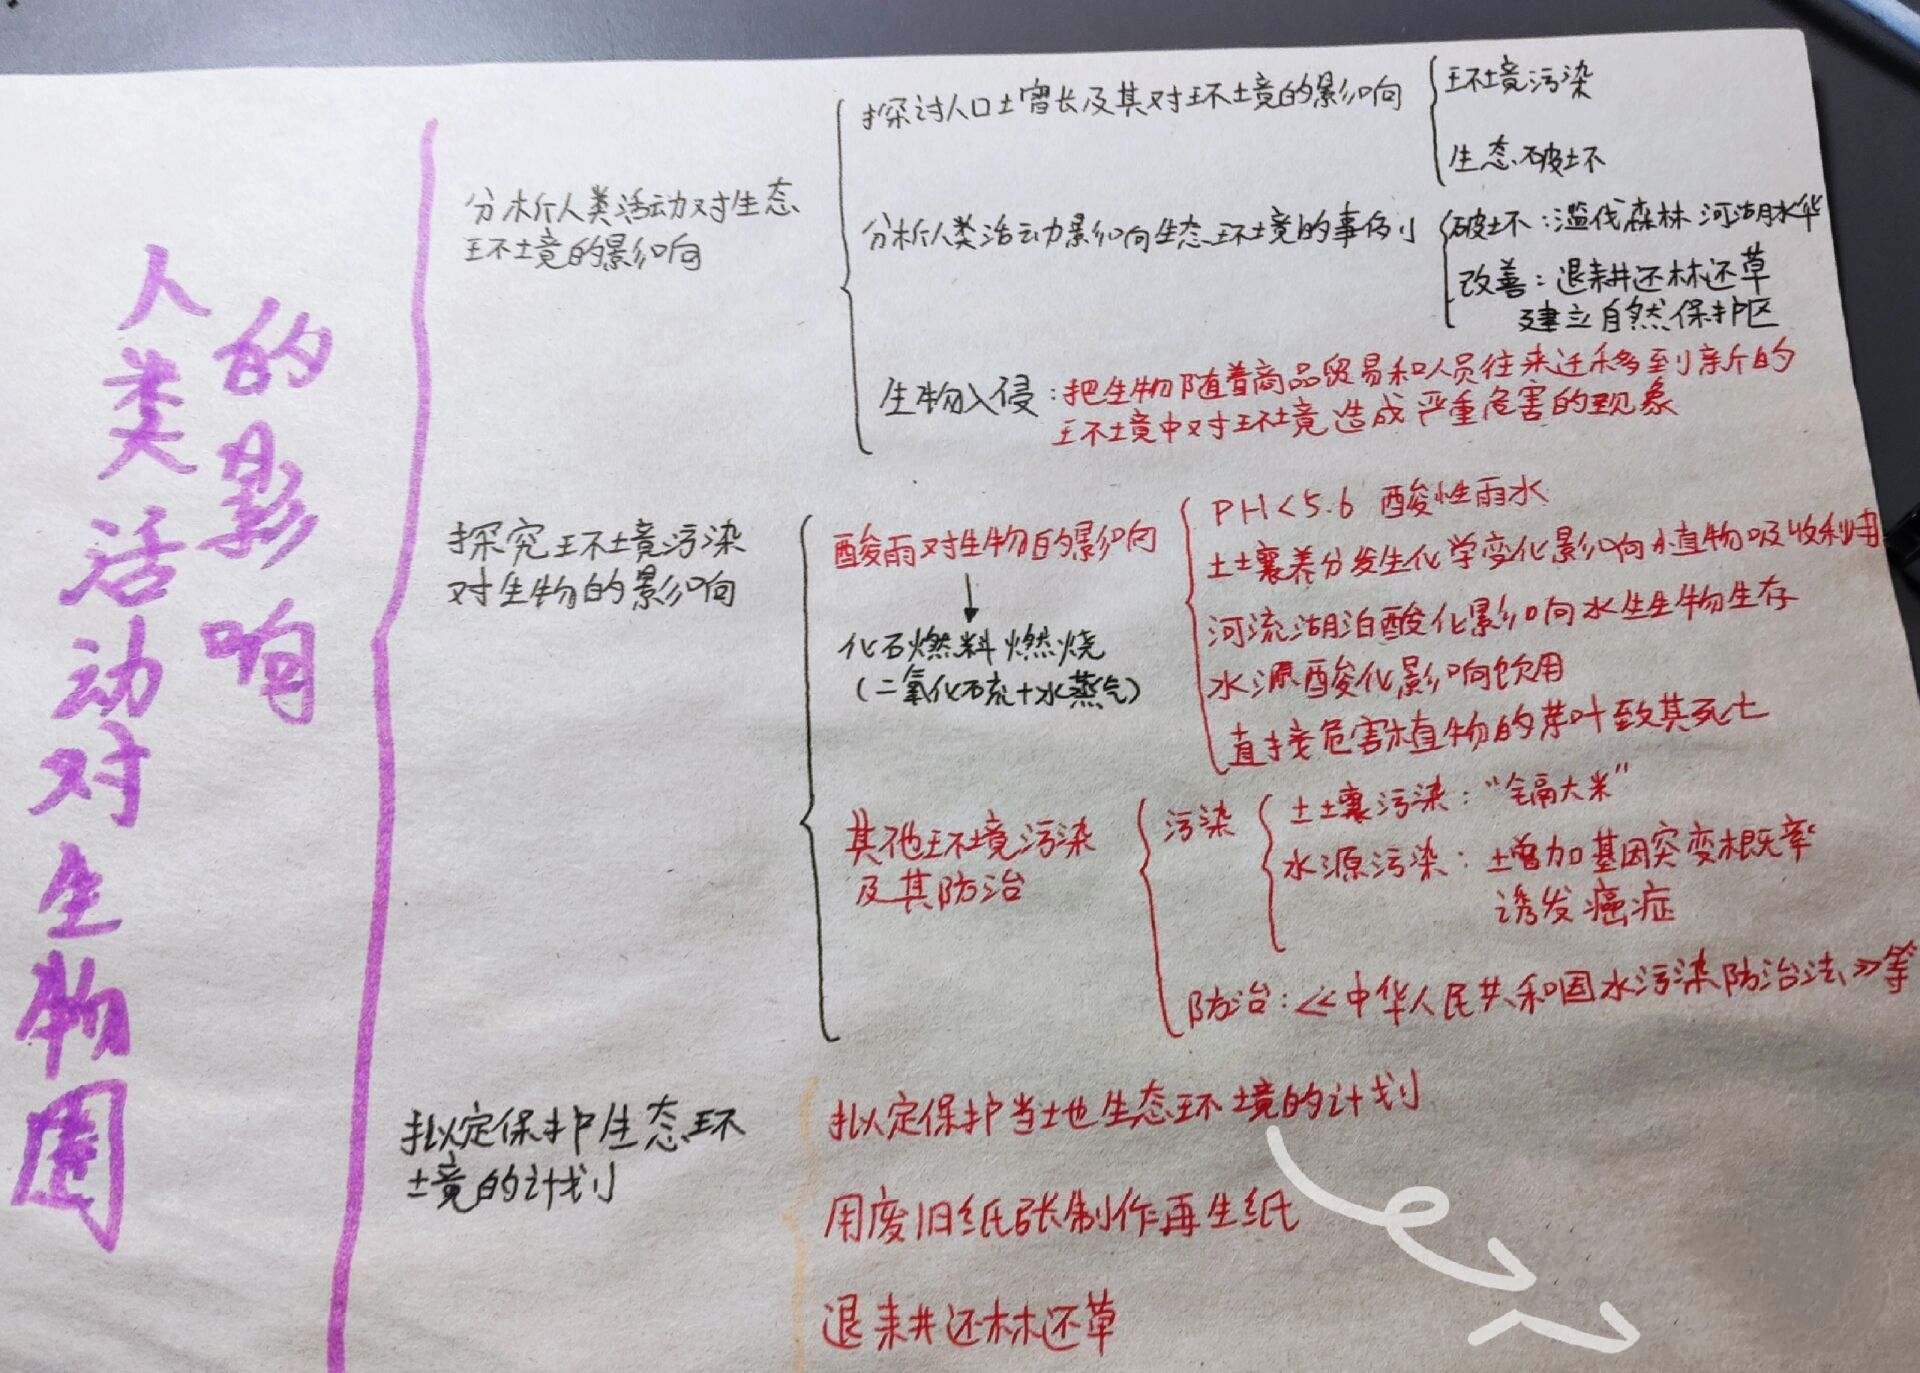 人类活动对生物圈
的影响
分析人类活动对生态
环境的影响
探讨人口增长及其对环境的影响
环境污染
生态破坏
分析人类活动影响生态环境的事例
破坏：滥伐森林 河湖水华
改善：退耕还林还草
建立自然保护区
生物入侵：把生物随着商品贸易和人员往来迁移到新的
环境中对环境造成严重危害的现象
探究环境污染
对生物的影响
酸雨对生物的影响
化石燃料燃烧
（二氧化硫+水蒸气）
PH<5.6 酸性雨水
土壤养分发生化学变化影响植物吸收利用
河流湖泊酸化影响水生生物生存
水源酸化影响饮用
直接危害植物的芽叶致其死亡
其他环境污染
及其防治
污染
土壤污染：“镉大米”
水源污染：增加基因突变概率
诱发癌症
防治：《中华人民共和国水污染防治法》等
拟定保护生态环
境的计划
拟定保护当地生态环境的计划
用废旧纸张制作再生纸
退耕还林还草